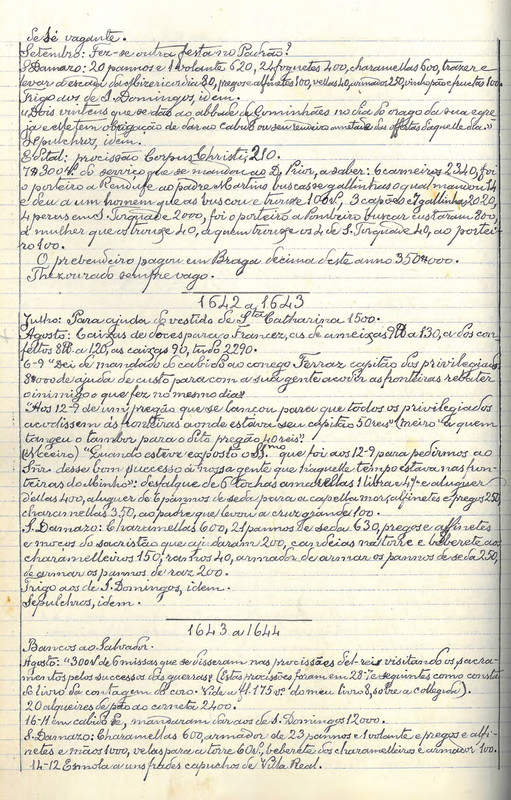 Sé Sé vagante.
Setembro: Fez-se outra festa no Padrão?
S. Damazo: 20 pannos e 1 volante 620, 24 foguetes 400, charamellas 600, trazer e
levar a escada da Mizericordia 80, pregos e alfinetes 100, vellas 40, armador 250, vinho pão e fructos 100.
Trigo aos de S. Domingos, idem.
"Dois vinteus que se dão ao abbade de Gominhães no dia do orago da sua egre-
ja e elle tem obrigação de dar ao cabido ou seu rendeiro ametade das offertas d'aquelle dia."
Sepulchros, idem.
Edital: procissão Corpus Christi, 210.
7#300 rs do serviço que se mandou ao D. Prior, a saber: 6 carneiros 2340, foi
o porteiro a Rendufe ao padre Martins buscasse gallinhas o qual mandou 14
e deu a um homem que as buscou e trouxe 100 rs, 3 capões e 7 gallinhas 2020,
4 perus em S. Torquade 2000, foi o porteiro a Pombeiro buscar custaram 800,
á mulher que os trouxe 40, a quem trouxe os 4 de S. Torquade 40, ao portei-
ro 100.
O prebendeiro pagou em Braga decima deste anno 350#000.
Thezourado sempre vago.
1642 a 1643
Julho: Para ajuda do vestido de Sta Catharina 1500.
Agosto: Caixas de doces para o Francez, as de ameixas 9 a 130, a dos con-
feitos 8 a 120, as caixas 90, tudo 2290.
6-9 "Dei de mandado do cabido ao conego Ferraz capitão dos privilegiados
8#000 de ajuda de custo para com a sua gente acodir as fronteiras rebater
o inimigo o que fez no mesmo dia"
"Aos 12-9 de um pregão que se lançou para que todos os privilegiados
acudissem ás fronteiras aonde estava seu capitão 50 reis" (meiro "a quem
tangeu o tambor para o dito pregão 40 reis"
(Meeiro) "Quando esteve exposto o SSmo que foi aos 12-9 para pedirmos ao
Snr. desse bom successo á nossa gente que n'aquelle tempo estava nas fron-
teiras do Minho": desfalque de 6 tochas amarellas 1 libra e 4 e aluguer
d'ellas 400, aluguer de 6 pannos de seda para a capella mor, alfinetes e pregos 250,
charamellas 350, ao padre que levou a cruz grande 100.
S. Damazo: Charamellas 600, 21 pannos de seda 630, pregos e alfinetes
e moços do sacristão que ajudaram 200, candeias na torre e beberete aos
charamelleiros 150, ramos 40, armador de armar os pannos de seda 250,
de armar os pannos de raz 200.
Trigo aos de S. Domingos, idem.
Sepulchros, idem.
1643 a 1644
Bancos ao Salvador.
Agosto: "300 rs de 6 missas que se disseram nas procissões d'el-rei visitando os sacra-
mentos pelos successos das guerras? (Estas procissões foram em 28-7 e seguintes como consta
do livro da contagem do coro. Vide a fl. 175 vº do meu livro 8, sobre a collegiada).
20 alqueires de pão ao corneta 2400.
16-11 em cabido Sé, mandaram dar aos de S. Domingos 12000.
S. Damazo: Charamellas 600, armador de 23 pannos e 1 volante e pregos e alfi-
netes e mãos 1000, velas para a torre 60 rs, beberete dos charamelleiros e armador 100.
14-12 Esmola a uns frades capuchos de Villa Real.